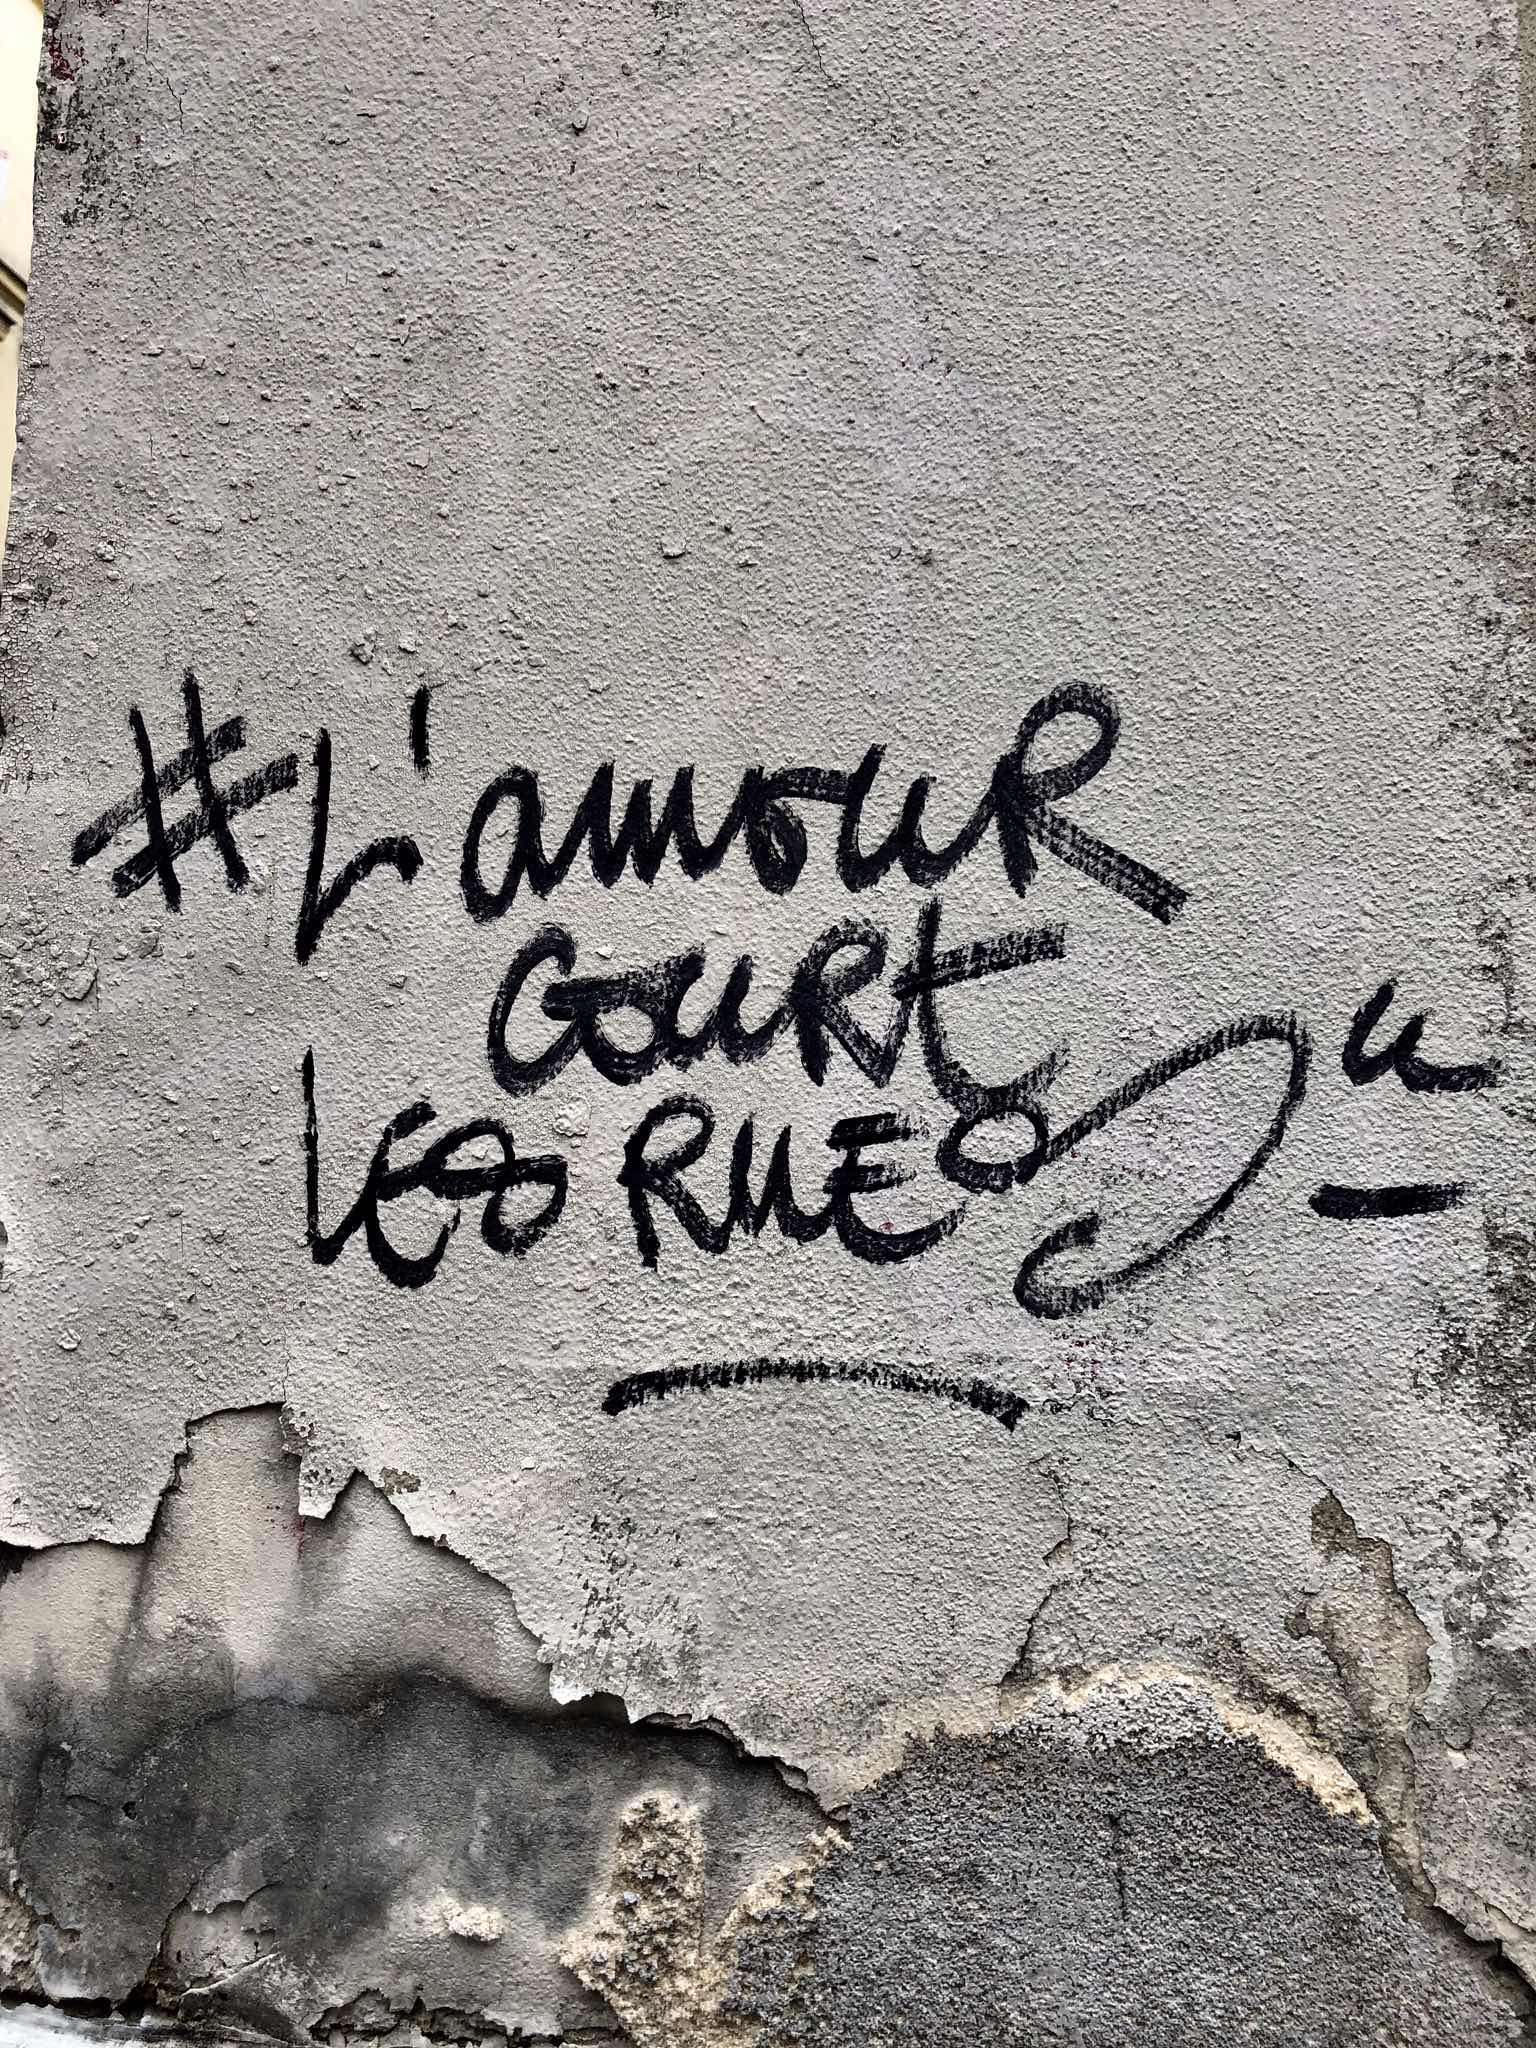 #L'amour
court
les rues